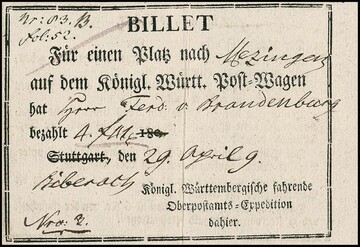 Nr: 83. B.
fol: 52.
BILLET
Für einen Platz nach Mezingen
auf dem Königl. Württ. Post-Wagen
hat Herr Ferd. v. Brandenburg
bezahlt 4. 180
Stuttgart, den 29 April 9.
Biberach
Königl. Württembergische fahrende
Oberpostamts-Expedition
dahier.
Nro: 2.